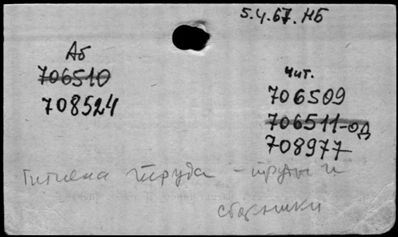 5.4.67. НБ
Аб
706510
708524
чит.
706509
706511-од
708977
Гигиена труда - труды и
сборники